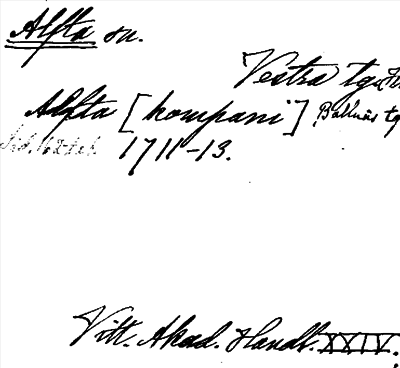 Alfta sn.
Vestra tg
Alfta [kompani] Bollnäs tg
1711-13.
Vitt. Akad. Handl. XXIV: